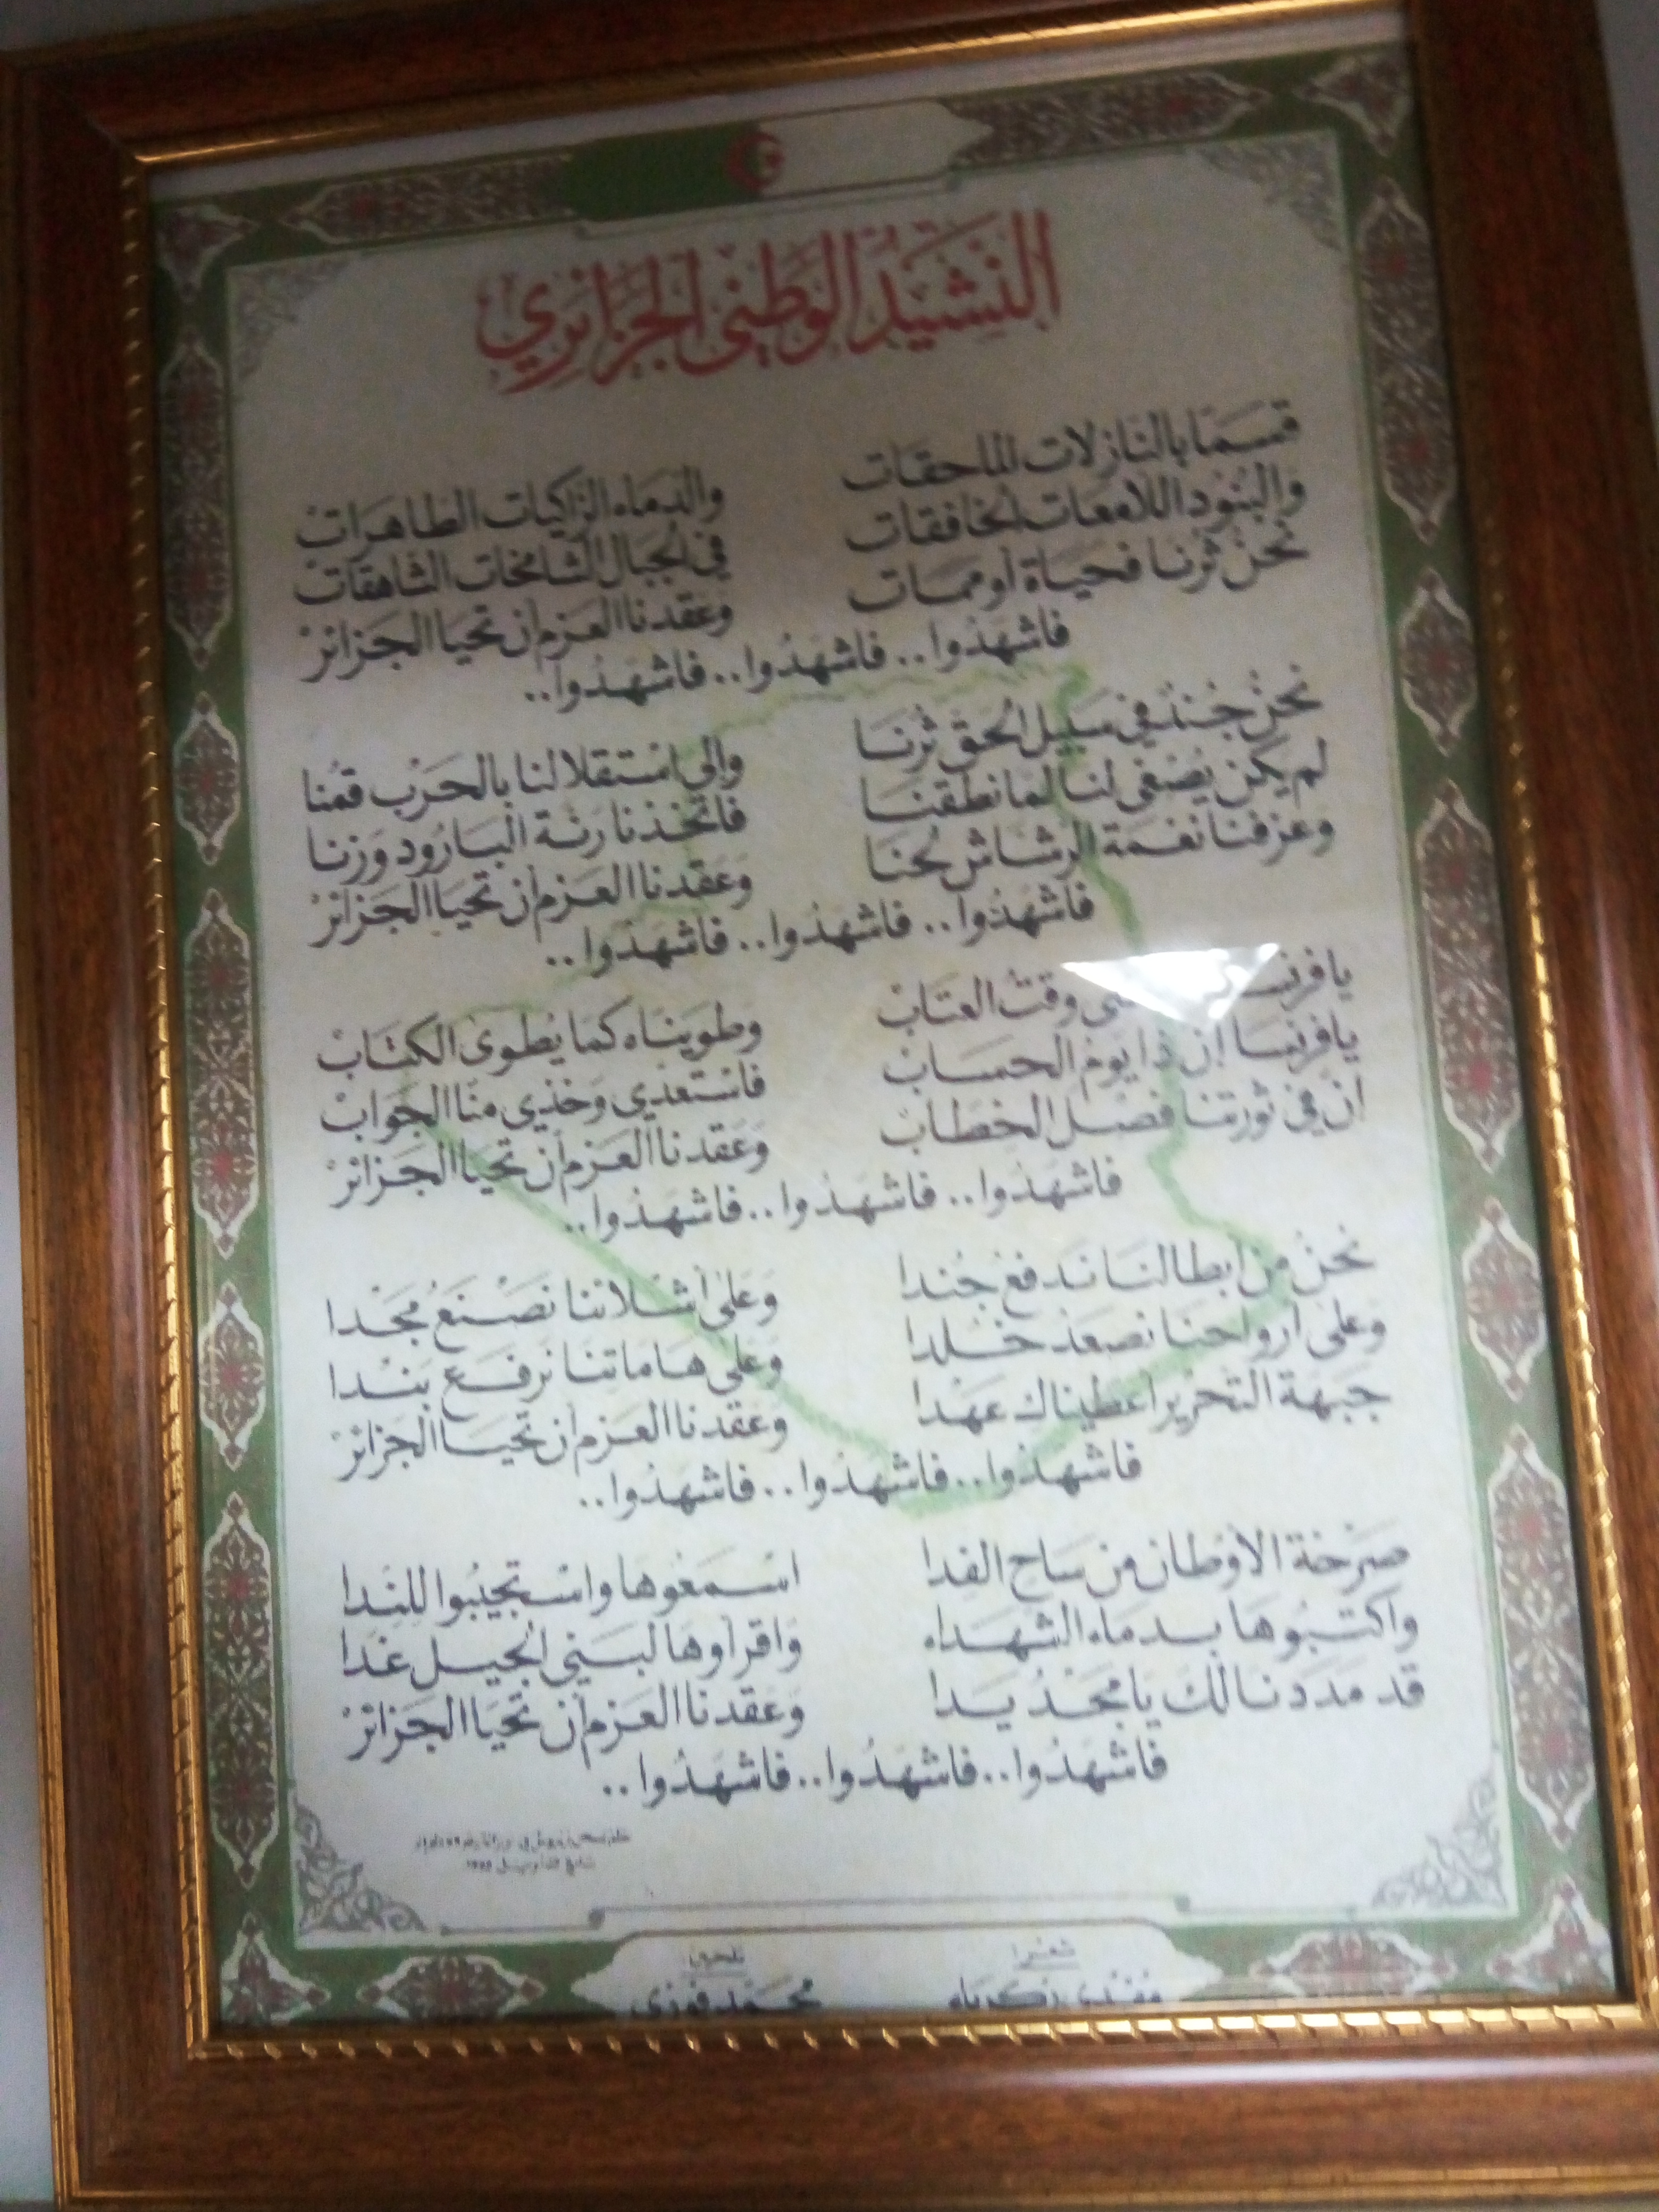 النشيد الوطني الجزائري
قسما بالنازلات الماحقات
والدماء الزاكيات الطاهرات
والبنود اللامعات الخافقات
في الجبال الشامخات الشاهقات
نحن ثرنا فحياة أو ممات
وعقدنا العزم أن تحيا الجزائر
فاشهدوا.. فاشهدوا.. فاشهدوا..
نحن جند في سبيل الحق ثرنا
وإلى استقلالنا بالحرب قمنا
لم يكن يصغى لنا لما نطقنا
فاتخذنا رنة البارود وزنا
وعزفنا نغمة الرشاش لحنا
وعقدنا العزم أن تحيا الجزائر
فاشهدوا.. فاشهدوا.. فاشهدوا..
يا وقت العتاب
وطويناه كما يطوى الكتاب
يا فرنسا إن ذا يوم الحساب
فاستعدي وخذي منا الجواب
ان في ثورتنا فصل الخطاب
وعقدنا العزم أن تحيا الجزائر
فاشهدوا.. فاشهدوا.. فاشهدوا..
نحن من أبطالنا ندفع جندا
وعلى أشلائنا نصنع مجدا
وعلى أرواحنا نصعد خلدا
وعلى هاماتنا نرفع بندا
جبهة التحرير أعطيناك عهدا
وعقدنا العزم أن تحيا الجزائر
فاشهدوا.. فاشهدوا.. فاشهدوا..
صرخة الأوطان من ساح الفدا
اسمعوها واستجيبوا للندا
واكتبوها بدماء الشهداء
واقرأوها لبني الجيل غدا
قد مددنا لك يا مجد يدا
وعقدنا العزم أن تحيا الجزائر
فاشهدوا.. فاشهدوا.. فاشهدوا..
مفدي زكرياء
تلحين
محمد فوزي